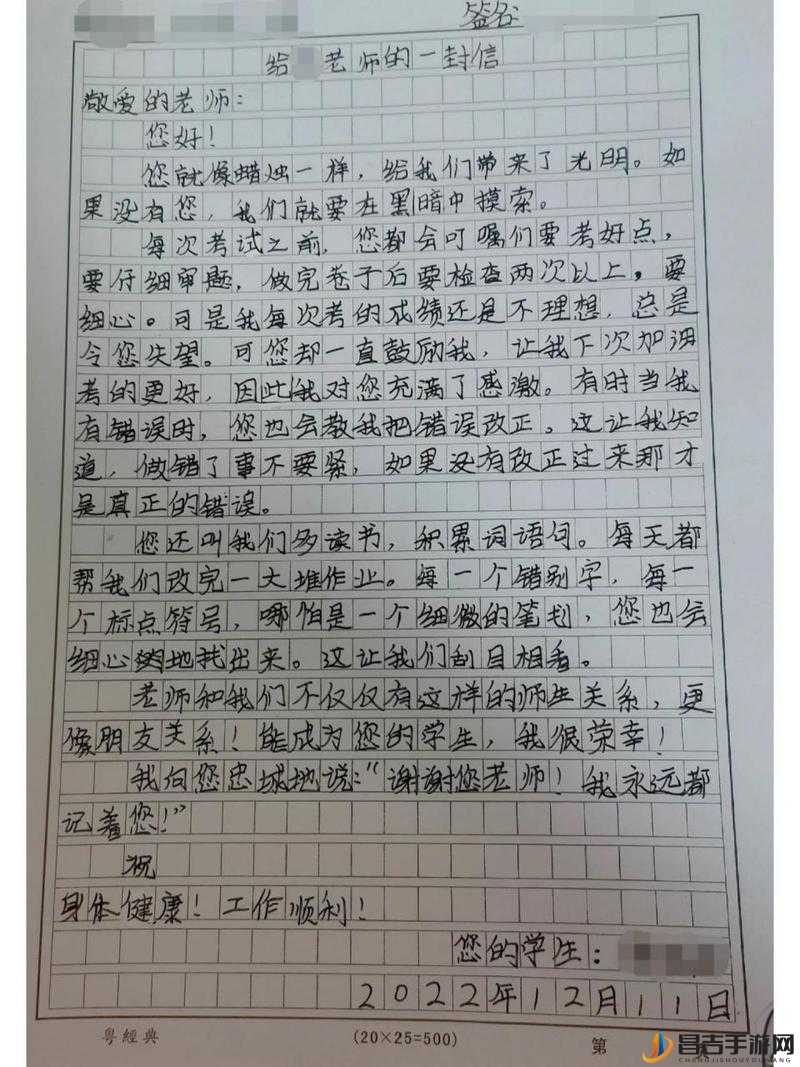 签名
给 老师的一封信
敬爱的老师：
您好！
您就像蜡烛一样，给我们带来了光明。如
果没有您，我们就要在黑暗中摸索。
每次考试之前，您都会叮嘱们要考好点，
要仔细审题，做完卷子后要检查两次以上，要
细心。可是我每次考的成绩还是不理想，总是
令您失望。可您却一直鼓励我，让我下次加油
考的更好，因此我对您充满了感激。有时当我
有错误时，您也会教我把错误改正。这让我知
道，做错了事不要紧，如果没有改正过来那才
是真正的错误。
您还叫我们多读书，积累词语句。每天都
帮我们改完一大堆作业。每一个错别字，每一
个标点符号，哪怕是一个细微的笔划，您也会
细心地找出来。这让我们刮目相看。
老师和我们不仅仅有这样的师生关系，更
像朋友关系！能成为您的学生，我很荣幸！
我向您忠城地说：“谢谢您老师！我永远都
记着您！”
祝
身体健康！工作顺利！
您的学生：
2022年12月11日
粤經典 (20×25=500) 第
昌吉手游网
CHENGJISHOUYOUWANG